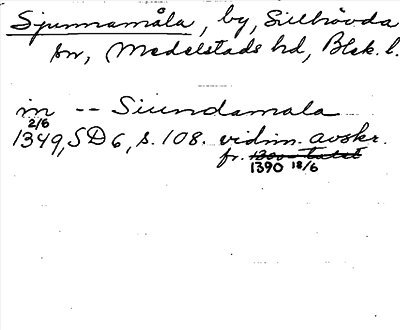 Sjunnamåla, by, Sillhövda
sn, Medelstads hd, Blek. l.
in -- Siundamala
2/6
1349, SD 6, s. 108. vidim. avskr.
fr. 1300-talet
1390 18/6